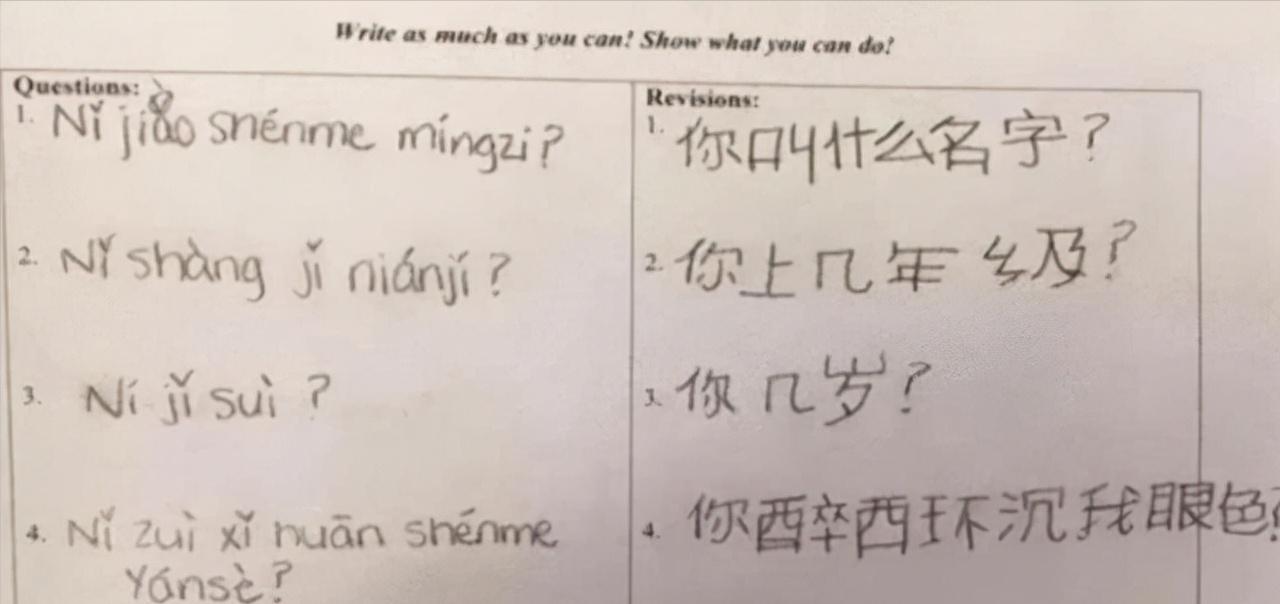 Write as much as you can! Show what you can do!
Questions:
1. Nǐ jiào shénme míngzi?
2. Nǐ shàng jǐ niánjí?
3. Ní jǐ suì?
4. Nǐ zuì xǐ huān shénme
Yánsè?
Revisions:
1. 你叫什么名字?
2. 你上几年级?
3. 你几岁?
4. 你酉卒西环沉我眼色?